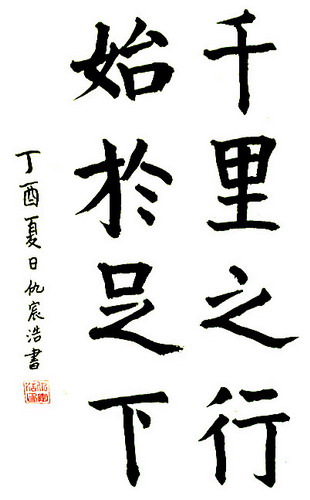 千里之行
始於足下
丁酉夏日仇宸浩書